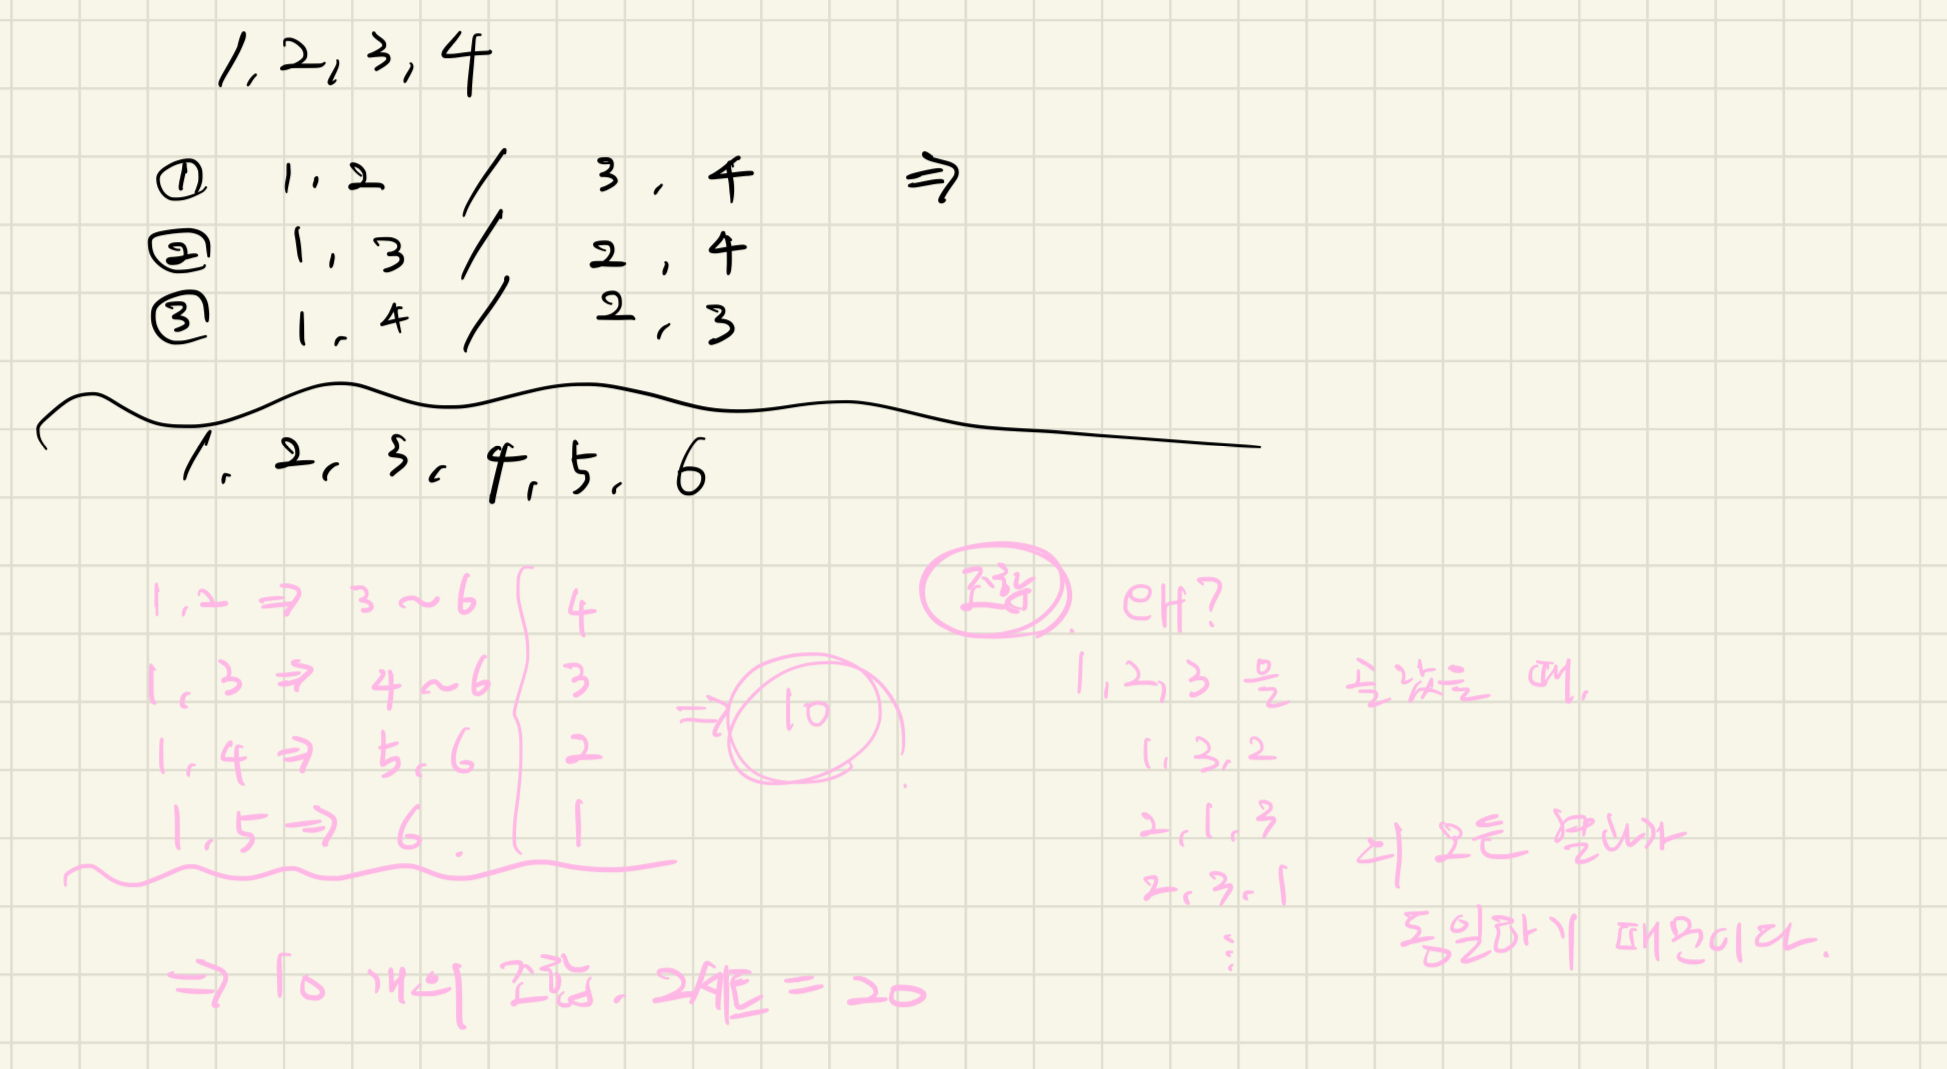 1, 2, 3, 4
① 1, 2 / 3, 4 ⇒
② 1, 3 / 2, 4
③ 1, 4 / 2, 3
1, 2, 3, 4, 5, 6
1, 2 ⇒ 3 ~ 6 4
1, 3 ⇒ 4 ~ 6 3
1, 4 ⇒ 5, 6 2
1, 5 ⇒ 6. 1
⇒ 10
⇒ 10 개의 조합. 2세트 = 20
조합. 왜?
1, 2, 3 을 골랐을 때,
1, 3, 2
2, 1, 3
2, 3, 1
⋮
의 모든 결과가
동일하기 때문이다.